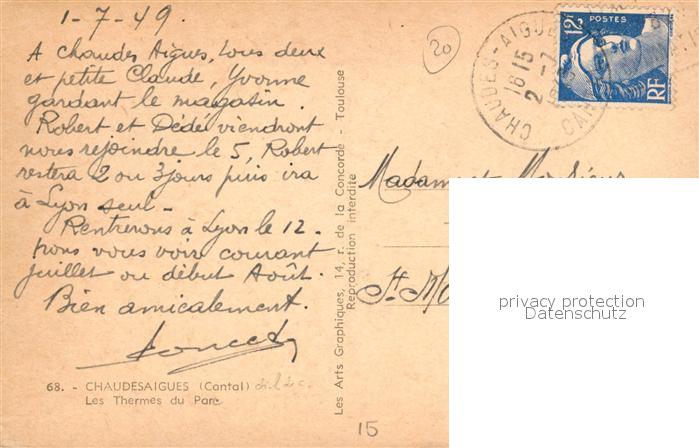 1-7-49.
A Chaudes Aigues, tous deux
et petite Claude, Yvonne
gardant le magasin.
Robert et Dédée viendront
nous rejoindre le 5, Robert
restera 2 ou 3 jours puis ira
à Lyon seul -
Rentrerons à Lyon le 12 -
pons vous voir courant
juillet ou début Août.
Bien amicalement.
68. - CHAUDESAIGUES (Cantal)
Les Thermes du Parc
Les Arts Graphiques, 14, r. de la Concorde - Toulouse
Reproduction interdite
20
CHAUDES-AIGUES
16 15
2 -7
CAN
12F POSTES
RF
Madame et Monsieur
St. Mo
privacy protection
Datenschutz
15